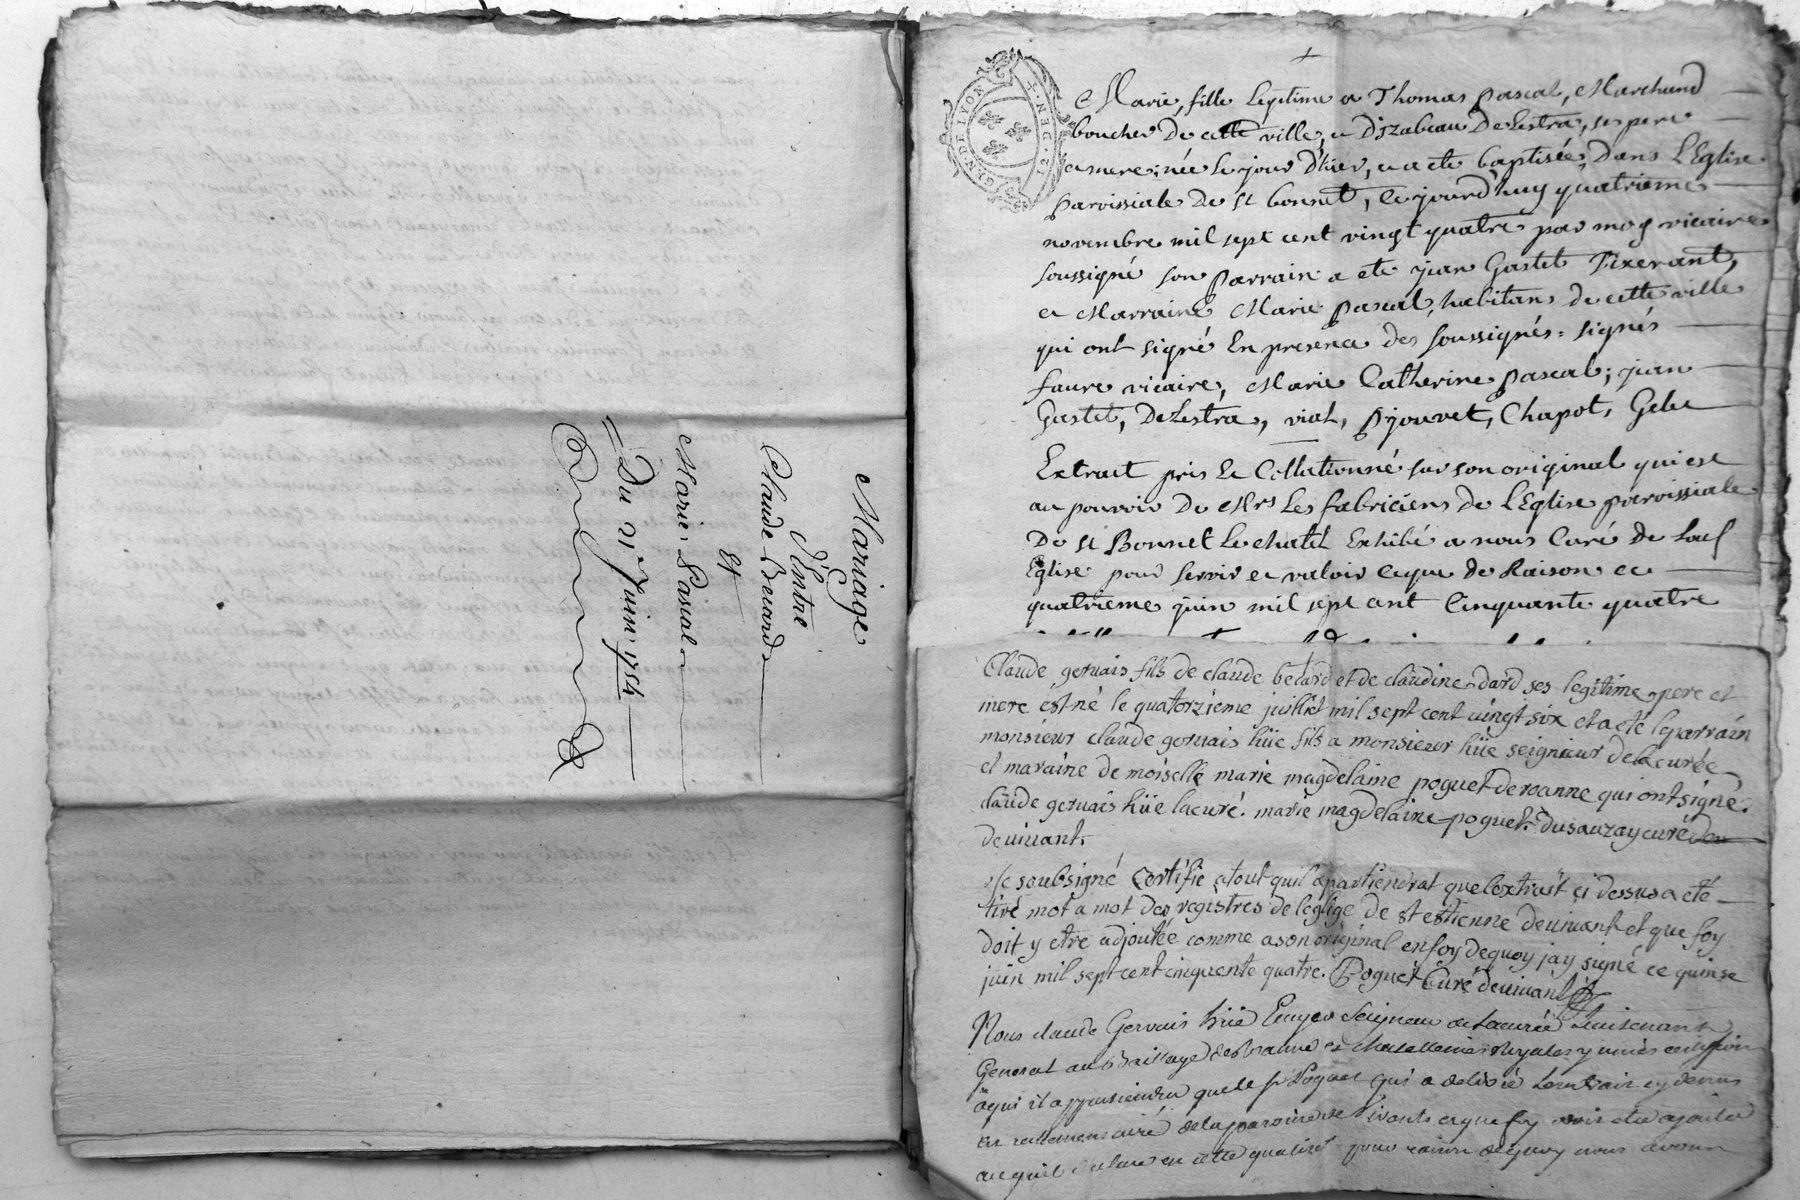 Mariage
D'Entre
Claude Berard
Et
Marie Pascal
= Du 21e Juin 1754
GEN·DE LYON
12·DEN·
Marie, fille Legitime a Thomas Pascal, Marchand
boucher De cette ville, et D'izabeau Delestra, ses pere
et mere; née le jour D'hier, et a ete baptisée, Dans L'Eglise
paroissiale De St bonnet, Cejourd'huy quatrieme
novembre mil sept cent vingt quatre par moy vicaire
soussigné son Parrain a ete jean Gastet Tixerant,
et Marraine Marie Pascal, habitans de cette ville
qui ont signé En presence des soussignés = signés
faure vicaire, Marie Catherine Pascal; jean
Gastet, Delestra, vial, Pijouvet, Chapot,
Extrait pris Et Collationné sur son original qui est
au pouvoir De Mrs Les fabriciens de L'Eglise paroissiale
De St Bonnet Le chatel Exhibé a nous Curé de
Eglise pour servir et valoir ce que de Raison ce
quatrieme juin mil sept cent Cinquante quatre
Claude gervais fils de claude berard et de claudine dard ses legitime pere et
mere est né le quatorzieme juillet mil sept cent vingt six et a eté le parrain
monsieur claude gervais hüe fils a monsieur hüe seigneur de la curée
et maraine de moiselle marie magdelaine poguet de roanne qui ont signé.
claude gervais hüe lacuré. marie magdelaine poguet. dusauzay curé
de vivant.
Je soubsigné certifie a tout quil apartiendrat que l'extrait ci dessus a eté
tiré mot a mot des registres de leglise de st estienne de vivant et que foy
doit y etre adjoutée comme a son original en foy de quoy jay signé ce quinse
juin mil sept cent cinquente quatre. Poguet Curé de vivant
Nous claude Gervais hüe Ecuyer Seigneur de Lacurée Lieutenant
General au Baillage de Roanne et chatellenies Royales y unies certifions
a qui il appartiendra que le sr Poguet qui a delivré Lextrait cy dessus
est reellement curé de la paroisse de Vivants et que foy doit etre ajoutée
a cequil delivre en cette qualité pour raison de quoy nous avons